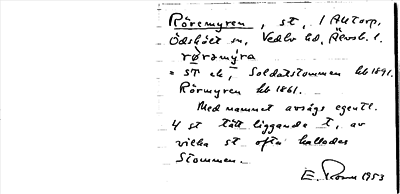 Röremyren, st, i Aketorp,
Ödskölt sn, Vedbo hd, Älvsb. l.
rörəmýra
= st ek, Soldatstommen hb 1891.
Rörmyren hb 1861.
Med namnet avsågs egentl.
4 st tätt liggande t, av
vilka st ofta kallades
Stommen.
E. 1953